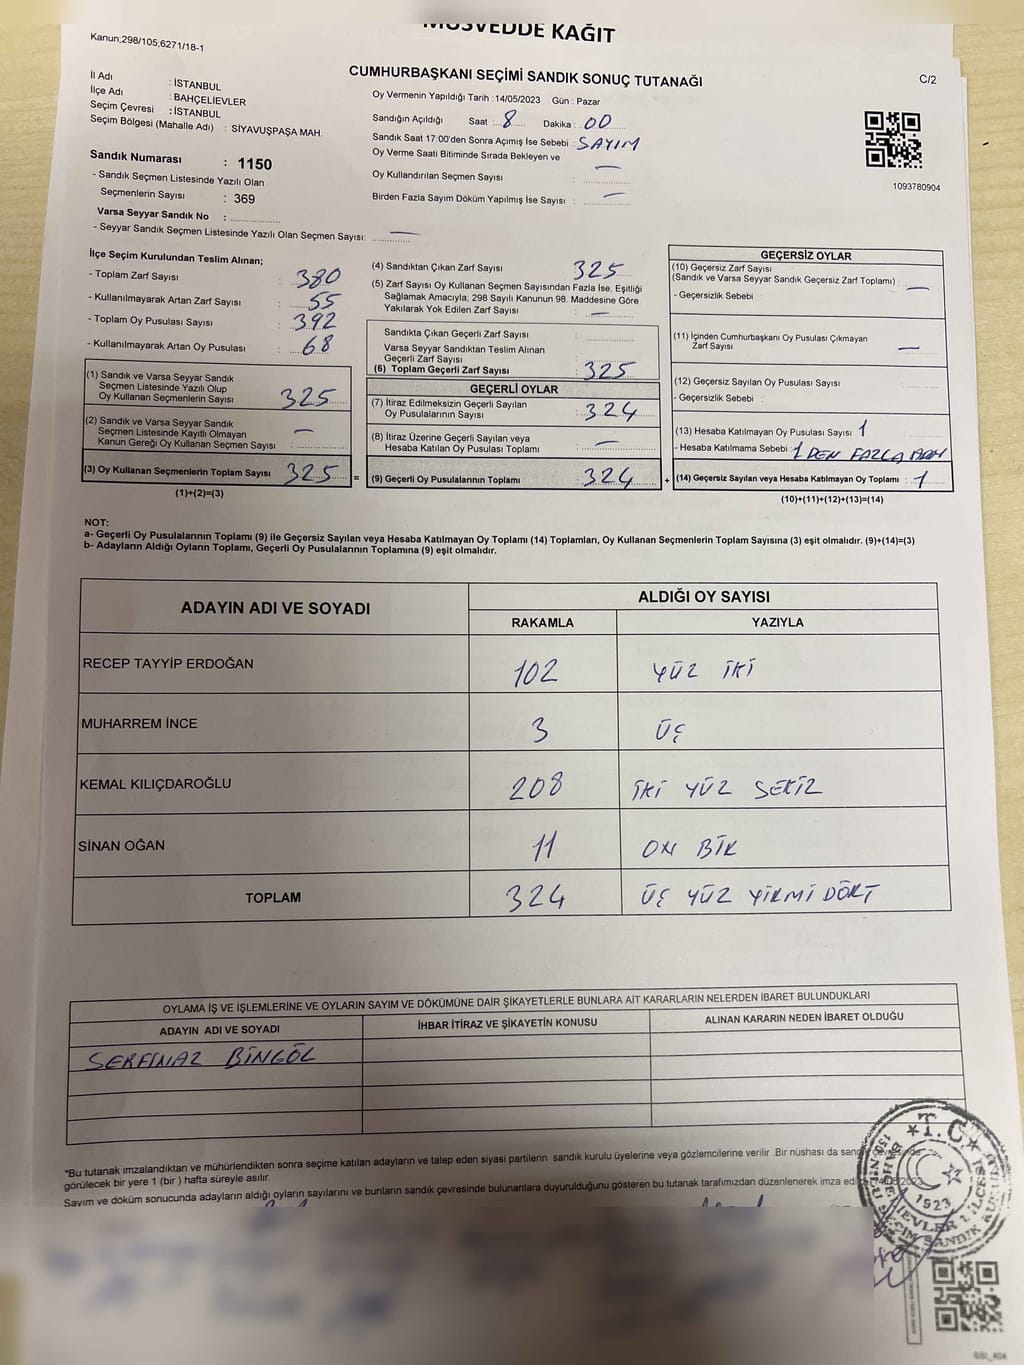 MÜSVEDDE KAĞIT
Kanun;298/105,6271/18-1
CUMHURBAŞKANI SEÇİMİ SANDIK SONUÇ TUTANAĞI
C/2
İl Adı : İSTANBUL
İlçe Adı : BAHÇELİEVLER
Seçim Çevresi : İSTANBUL
Seçim Bölgesi (Mahalle Adı) : SİYAVUŞPAŞA MAH.
Sandık Numarası : 1150
- Sandık Seçmen Listesinde Yazılı Olan
Seçmenlerin Sayısı : 369
Varsa Seyyar Sandık No :
- Seyyar Sandık Seçmen Listesinde Yazılı Olan Seçmen Sayısı: —
Oy Vermenin Yapıldığı Tarih : 14/05/2023 Gün : Pazar
Sandığın Açıldığı Saat : 8 Dakika : 00
Sandık Saat 17:00'den Sonra Açımış İse Sebebi : SAYIM
Oy Verme Saati Bitiminde Sırada Bekleyen ve —
Oy Kullandırılan Seçmen Sayısı :
Birden Fazla Sayım Döküm Yapılmış İse Sayısı : —
1093780904
İlçe Seçim Kurulundan Teslim Alınan;
- Toplam Zarf Sayısı : 380
- Kullanılmayarak Artan Zarf Sayısı : 55
- Toplam Oy Pusulası Sayısı : 392
- Kullanılmayarak Artan Oy Pusulası : 68
(1) Sandık ve Varsa Seyyar Sandık
Seçmen Listesinde Yazılı Olup
Oy Kullanan Seçmenlerin Sayısı : 325
(2) Sandık ve Varsa Seyyar Sandık
Seçmen Listesinde Kayıtlı Olmayan —
Kanun Gereği Oy Kullanan Seçmen Sayısı :
(3) Oy Kullanan Seçmenlerin Toplam Sayısı : 325
(1)+(2)=(3)
=
(4) Sandıktan Çıkan Zarf Sayısı : 325
(5) Zarf Sayısı Oy Kullanan Seçmen Sayısından Fazla İse, Eşitliği
Sağlamak Amacıyla; 298 Sayılı Kanunun 98. Maddesine Göre
Yakılarak Yok Edilen Zarf Sayısı : —
Sandıkta Çıkan Geçerli Zarf Sayısı :
Varsa Seyyar Sandıktan Teslim Alınan
Geçerli Zarf Sayısı :
(6) Toplam Geçerli Zarf Sayısı : 325
GEÇERLİ OYLAR
(7) İtiraz Edilmeksizin Geçerli Sayılan
Oy Pusulalarının Sayısı : 324
(8) İtiraz Üzerine Geçerli Sayılan veya
Hesaba Katılan Oy Pusulası Toplamı : —
(9) Geçerli Oy Pusulalarının Toplamı : 324
+
GEÇERSİZ OYLAR
(10) Geçersiz Zarf Sayısı
(Sandık ve Varsa Seyyar Sandık Geçersiz Zarf Toplamı) : —
- Geçersizlik Sebebi :
(11) İçinden Cumhurbaşkanı Oy Pusulası Çıkmayan
Zarf Sayısı : —
(12) Geçersiz Sayılan Oy Pusulası Sayısı :
- Geçersizlik Sebebi :
(13) Hesaba Katılmayan Oy Pusulası Sayısı : 1
- Hesaba Katılmama Sebebi : 1 DEN FAZLA
(14) Geçersiz Sayılan veya Hesaba Katılmayan Oy Toplamı : 1
(10)+(11)+(12)+(13)=(14)
NOT:
a- Geçerli Oy Pusulalarının Toplamı (9) ile Geçersiz Sayılan veya Hesaba Katılmayan Oy Toplamı (14) Toplamları, Oy Kullanan Seçmenlerin Toplam Sayısına (3) eşit olmalıdır. (9)+(14)=(3)
b- Adayların Aldığı Oyların Toplamı, Geçerli Oy Pusulalarının Toplamına (9) eşit olmalıdır.
ADAYIN ADI VE SOYADI
ALDIĞI OY SAYISI
RAKAMLA YAZIYLA
RECEP TAYYİP ERDOĞAN 102 YÜZ İKİ
MUHARREM İNCE 3 ÜÇ
KEMAL KILIÇDAROĞLU 208 İKİ YÜZ SEKİZ
SİNAN OĞAN 11 ON BİR
TOPLAM 324 ÜÇ YÜZ YİRMİ DÖRT
OYLAMA İŞ VE İŞLEMLERİNE VE OYLARIN SAYIM VE DÖKÜMÜNE DAİR ŞİKAYETLERLE BUNLARA AİT KARARLARIN NELERDEN İBARET BULUNDUKLARI
ADAYIN ADI VE SOYADI İHBAR İTİRAZ VE ŞİKAYETİN KONUSU ALINAN KARARIN NEDEN İBARET OLDUĞU
SERFİNAZ BİNGÖL
"Bu tutanak imzalandıktan ve mühürlendikten sonra seçime katılan adayların ve talep eden siyasi partilerin sandık kurulu üyelerine veya gözlemcilerine verilir .Bir nüshası da sandık çevresinde
görülecek bir yere 1 (bir ) hafta süreyle asılır.
Sayım ve döküm sonucunda adayların aldığı oyların sayılarını ve bunların sandık çevresinde bulunanlara duyurulduğunu gösteren bu tutanak tarafımızdan düzenlenerek imza edildi.
★T.C★
1923